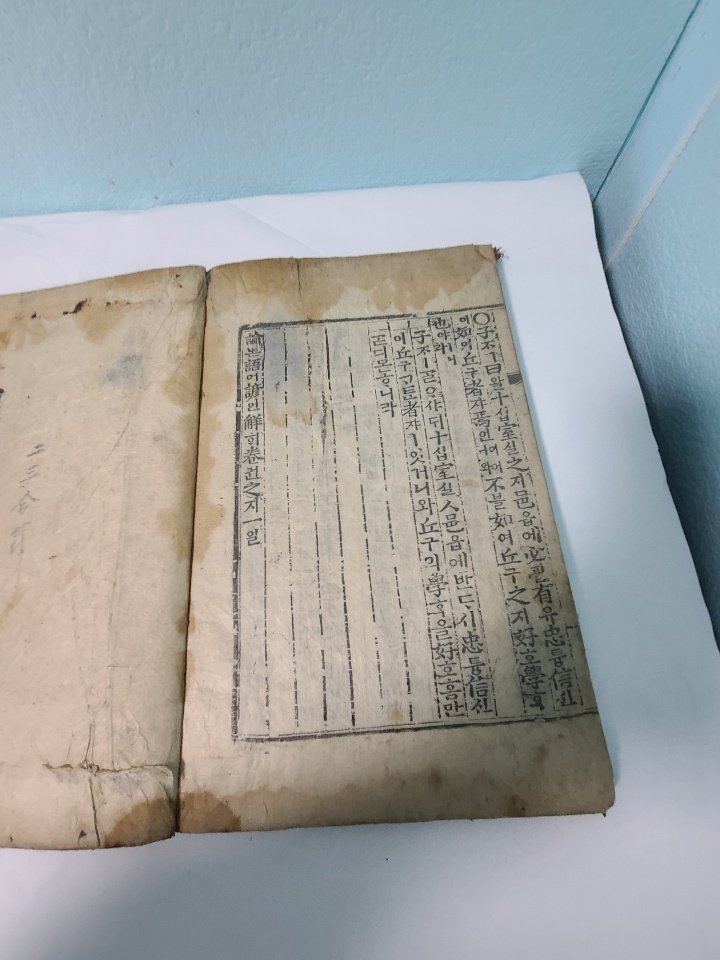 ○子ᄌᆞㅣ曰왈十십室실之지邑읍에必필有유忠튱信신
이如여丘구者쟈焉언이어니와不블如여丘구之지好호學ᄒᆞᆨ
也야ㅣ니라
子ᄌᆞㅣᄀᆞᆯᄋᆞ샤ᄃᆡ十십室실ㅅ邑읍에반ᄃᆞ시忠튱信신
이丘구ᄀᆞᆮᄐᆞᆫ者쟈ㅣ잇거니와丘구의學ᄒᆞᆨ을好호홈만
ᄀᆞᆮ디몯ᄒᆞ니라
論논語어諺언解ᄒᆡ卷권之지一일